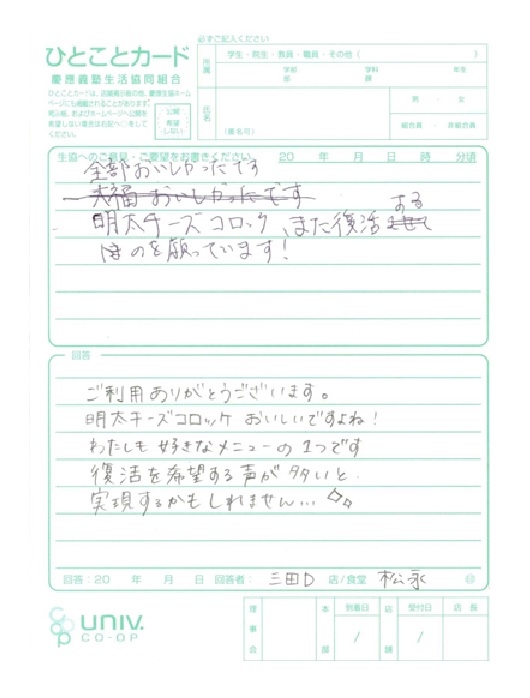 必ずご記入ください
ひとことカード
慶應義塾生活協同組合
ひとことカードは、店頭掲示板の他、慶應生協ホームページにも掲載されることがあります。
掲示板、およびホームページへ公開を希望しない場合は右記へ○をしてください。
公開
希望
しない
所属
学生・院生・教員・職員・その他( )
学部 学科 年生
部 課
氏名
(匿名可)
男 ・ 女
組合員 ・ 非組合員
生協へのご意見・ご要望をお書きください 20 年 月 日 時 分頃
全部おいしかったです
大福 おいしかったです
明太チーズコロッケ、また復活する
のを願っています!
回答
ご利用ありがとうございます。
明太チーズコロッケ おいしいですよね!
わたしも好きなメニューの1つです
復活を希望する声が多いと
実現するかもしれません…
回答:20 年 月 日 回答者: 三田D 店/食堂 松永 ㊞
UNIV.
CO-OP
理事会
本部
到着日
/
店舗
受付日
/
店長